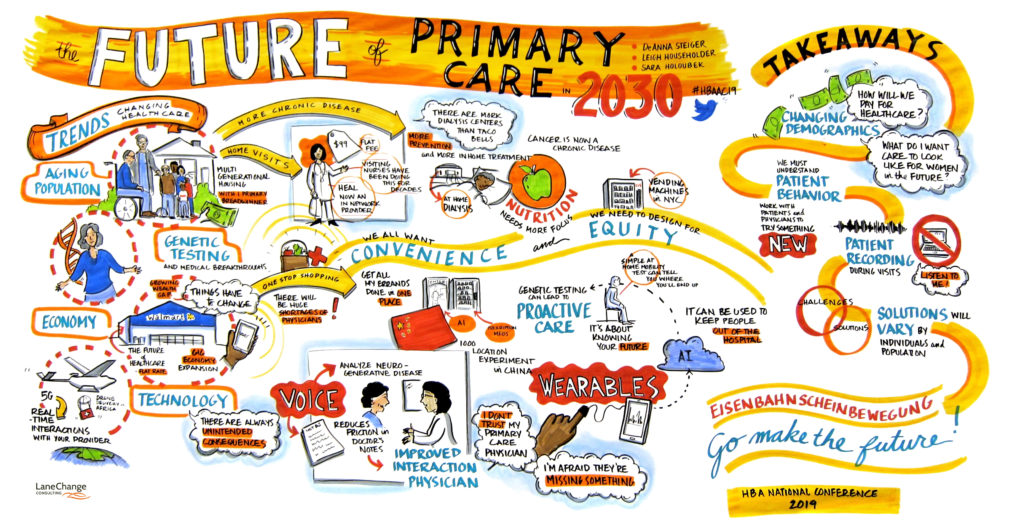 the FUTURE of PRIMARY
CARE IN 2030
• DeANNA STEIGER
• LEIGH HOUSEHOLDER
• SARA HOLOUBEK
#HBAAC19
TRENDS CHANGING
HEALTH CARE
AGING
POPULATION
MORE CHRONIC DISEASE
HOME VISITS
MULTI
GENERATIONAL
HOUSING
WITH 1 PRIMARY
BREADWINNER
$99
FLAT
FEE
VISITING
NURSES HAVE
BEEN DOING
THIS FOR
DECADES
HEAL
NOW AN
IN NETWORK
PROVIDER
THERE ARE MORE
DIALYSIS CENTERS
THAN TACO
BELLS
MORE
PREVENTION
and MORE IN HOME TREATMENT
AT HOME
DIALYSIS
CANCER IS NOW A
CHRONIC DISEASE
NUTRITION
NEEDS MORE FOCUS
VENDING
MACHINES
in NYC
GENETIC
TESTING
AND MEDICAL BREAKTHROUGHS
WE ALL WANT
CONVENIENCE
and
WE NEED TO DESIGN FOR
EQUITY
ECONOMY
GROWING
WEALTH
GAP
THINGS HAVE
to CHANGE
Walmart
THE FUTURE
of
HEALTHCARE
FLAT RATE
GIG
ECONOMY
EXPANSION
ONE STOP SHOPPING
THERE WILL
BE HUGE
SHORTAGES OF
PHYSICIANS
!
GET ALL
MY ERRANDS
DONE in ONE
PLACE
AI
1000
LOCATION
EXPERIMENT
in CHINA
GENETIC TESTING
CAN LEAD TO
PROACTIVE
CARE
SIMPLE AT
HOME MOBILITY
TEST CAN TELL
YOU WHERE
YOU'LL END UP
IT'S ABOUT
KNOWING
YOUR FUTURE
IT CAN BE USED TO
KEEP PEOPLE
OUT OF THE
HOSPITAL
AI
TECHNOLOGY
5G
REAL
-TIME
INTERACTIONS
WITH YOUR PROVIDER
DRONE
DELIVERY in
AFRICA
THERE ARE ALWAYS
UNINTENDED
CONSEQUENCES
VOICE
ANALYZE NEURO-
GENERATIVE DISEASE
REDUCES
FRICTION in
DOCTOR'S
NOTES
IMPROVED
INTERACTION
PHYSICIAN
WEARABLES
I DON'T
TRUST MY
PRIMARY
CARE
PHYSICIAN
I'M AFRAID THEY'RE
MISSING SOMETHING
TAKEAWAYS
HOW WILL WE
PAY FOR
HEALTHCARE?
CHANGING
DEMOGRAPHICS
WHAT DO I WANT
CARE TO LOOK
LIKE FOR WOMEN
in the FUTURE?
WE MUST
UNDERSTAND
PATIENT
BEHAVIOR
WORK WITH
PATIENTS and
PHYSICIANS TO
TRY SOMETHING
NEW
PATIENT
RECORDING
DURING VISITS
LISTEN TO
ME!
CHALLENGES
SOLUTIONS
SOLUTIONS WILL
VARY BY
INDIVIDUALS and
POPULATION
EISENBAHNSCHEINBEWEGUNG
Go make the future!
HBA NATIONAL CONFERENCE
2019
LaneChange
CONSULTING